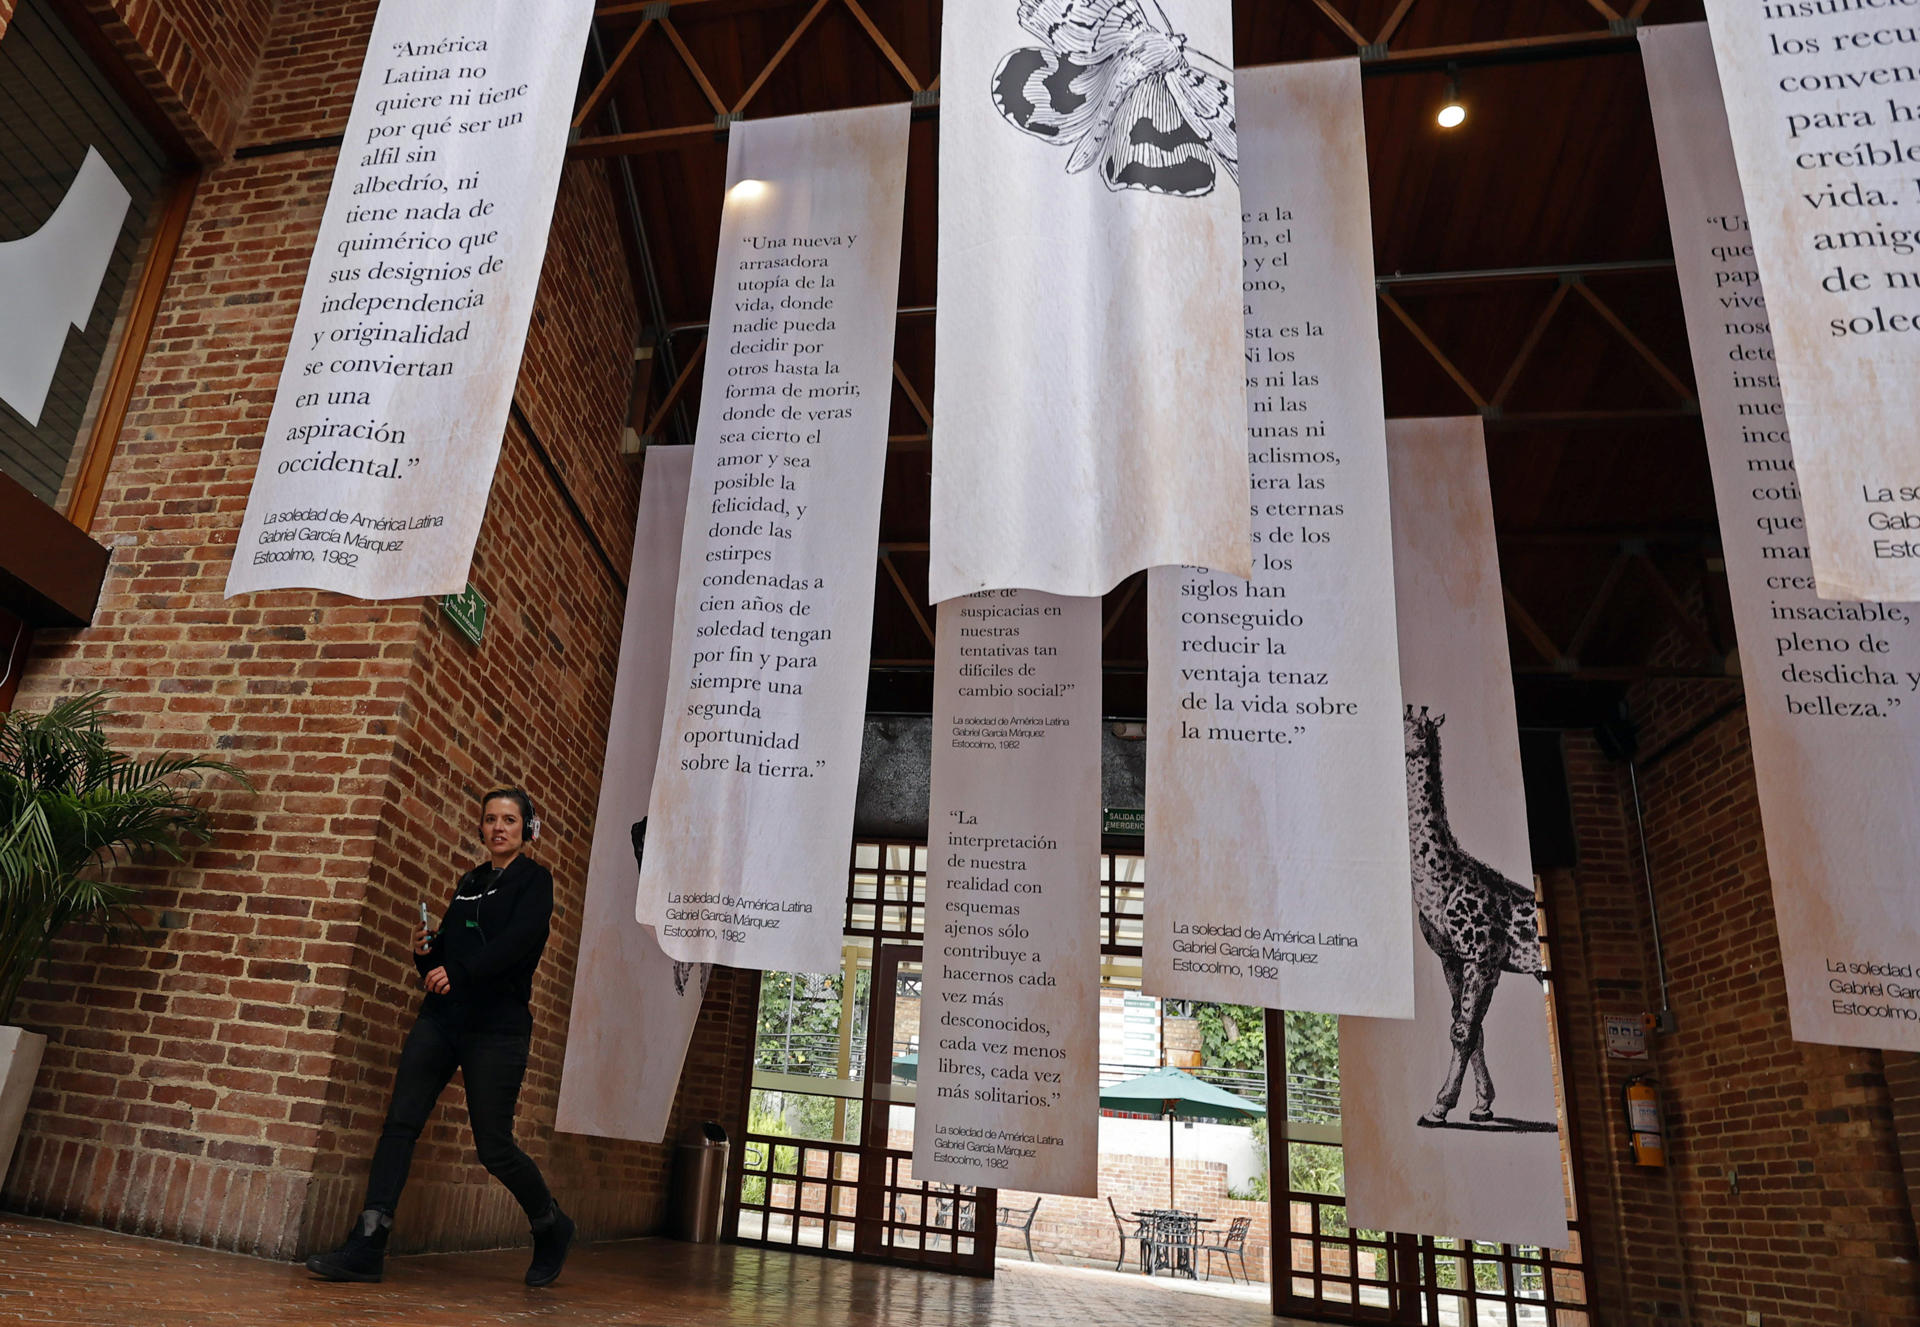 “América
Latina no
quiere ni tiene
por qué ser un
alfil sin
albedrío, ni
tiene nada de
quimérico que
sus designios de
independencia
y originalidad
se conviertan
en una
aspiración
occidental.”
La soledad de América Latina
Gabriel García Márquez
Estocolmo, 1982
“Una nueva y
arrasadora
utopía de la
vida, donde
nadie pueda
decidir por
otros hasta la
forma de morir,
donde de veras
sea cierto el
amor y sea
posible la
felicidad, y
donde las
estirpes
condenadas a
cien años de
soledad tengan
por fin y para
siempre una
segunda
oportunidad
sobre la tierra.”
La soledad de América Latina
Gabriel García Márquez
Estocolmo, 1982
clase de
suspicacias en
nuestras
tentativas tan
difíciles de
cambio social?”
La soledad de América Latina
Gabriel García Márquez
Estocolmo, 1982
“La
interpretación
de nuestra
realidad con
esquemas
ajenos sólo
contribuye a
hacernos cada
vez más
desconocidos,
cada vez menos
libres, cada vez
más solitarios.”
La soledad de América Latina
Gabriel García Márquez
Estocolmo, 1982
SALIDA DE
EMERGENC
e a la
ón, el
y el
ono,
a
sta es la
Ni los
os ni las
ni las
unas ni
aclismos,
iera las
s eternas
es de los
y los
siglos han
conseguido
reducir la
ventaja tenaz
de la vida sobre
la muerte.”
La soledad de América Latina
Gabriel García Márquez
Estocolmo, 1982
“Un
que
pap
vive
noso
dete
inst
nue
inco
muc
coti
que
man
crea
insaciable,
pleno de
desdicha y
belleza.”
La soledad d
Gabriel Garc
Estocolmo,
insuficie
los recu
conven
para ha
creíble
vida.
amigo
de nu
soled
La so
Gab
Esto